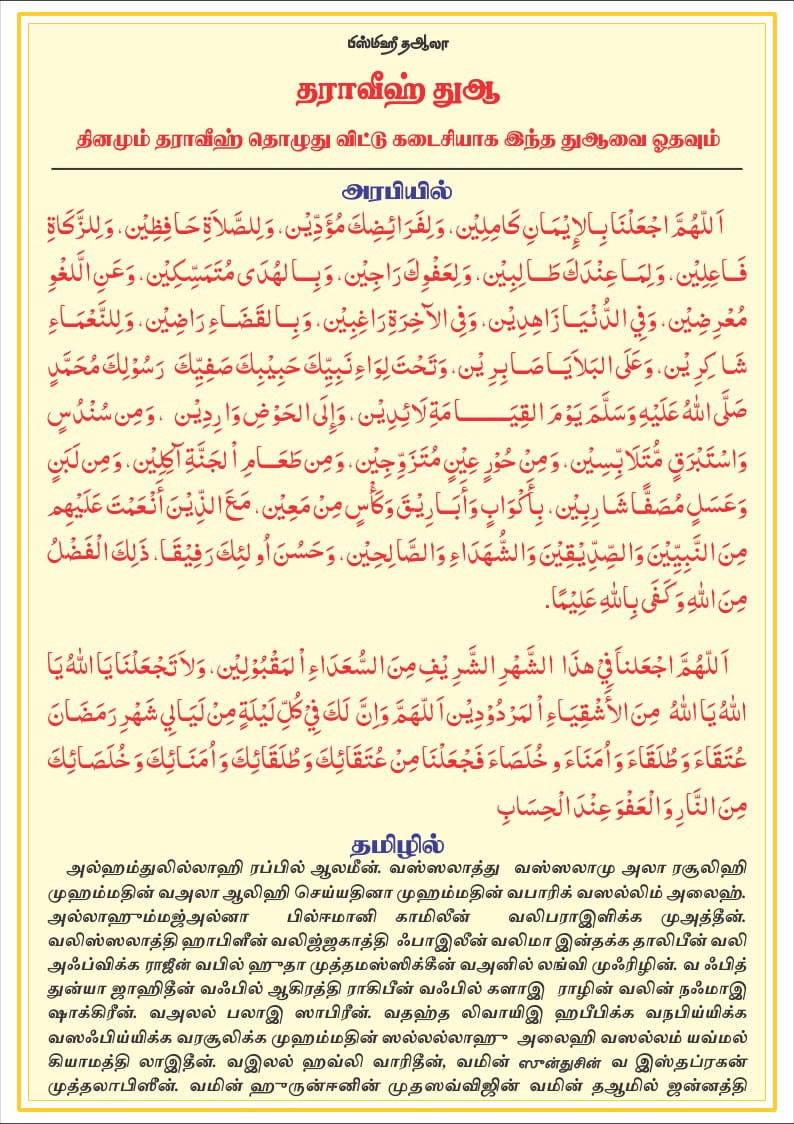 பிஸ்மிஹீ தஆலா
தராவீஹ் துஆ
தினமும் தராவீஹ் தொழுது விட்டு கடைசியாக இந்த துஆவை ஓதவும்
அரபியில்
اَللّٰهُمَّ اجْعَلْنَا بِالإِيْمَانِ كَامِلِيْن، وَلِفَرَائِضِكَ مُؤَدِّيْن، وَلِلصَّلاَةِ حَافِظِيْن، وَلِلزَّكَاةِ
فَاعِلِيْن، وَلِمَا عِنْدَكَ طَالِبِيْن، وَلِعَفْوِكَ رَاجِيْن، وَبِالهُدَى مُتَمَسِّكِيْن، وَعَنِ الَّلغْوِ
مُعْرِضِيْن، وَفِي الدُّنْيَا زَاهِدِيْن، وَفِى الآخِرَةِ رَاغِبِيْن، وَبِالقَضَاءِ رَاضِيْن، وَلِلنَّعْمَاءِ
شَاكِرِيْن، وَعَلَى البَلاَيَا صَابِرِيْن، وَتَحْتَ لِوَاءِ نَبِيِّكَ حَبِيْبِكَ صَفِيِّكَ رَسُوْلِكَ مُحَمَّدٍ
صَلَّى اللهُ عَلَيْهِ وَسَلَّمَ يَوْمَ القِيَامَةِ لاَئِدِيْن، وَإِلَى الحَوْضِ وَارِدِيْن ، وَمِن سُنْدُسٍ
وَاسْتَبْرَقٍ مُّتَلَابِّسِيْن، وَمِنْ حُوْرٍ عِيْنٍ مُتَزَوِّجِيْن، وَمِن طَعَامِ اْلجَنَّةِ آكِلِيْن، وَمِن لَبَنٍ
وَعَسَلٍ مُصَفًّا شَارِبِيْن، بِأَكْوَابٍ وَأَبَارِيْقَ وَكَأْسٍ مِنْ مَعِيْن، مَعَ الذِّيْنَ أَنْعَمْتَ عَلَيْهِم
مِنَ النَّبِيِّيْنَ وَالصِّدِّيْقِيْنَ وَالشُّهَدَاءِ وَالصَّالِحِيْن، وَحَسُنَ اُولئِكَ رَفِيْقًا، ذَلِكَ الْفَضْلُ
مِنَ اللهِ وَكَفَى بِاللهِ عَلِيْمًا.
اَللّٰهُمَّ اجْعَلنَا فِيْ هذَا الشَّهْرِ الشَّرِيْفِ مِنَ السُّعَدَاءِ اْلمَقْبُوْلِيْن، وَلاَ تَجْعَلْنَا يَا اللهُ يَا
اللهُ يَا اللهُ مِنَ الأَشْقِيَاءِ اْلمَرْدُوْدِيْن اَللهَمَّ وَاِنَّ لَكَ فِيْ كُلِّ لَيْلَةٍ مِنْ لَيَالِي شَهْرِ رَمَضَانَ
عُتَقَاءَ وَ طُلَقَاءَ وَ اُمَنَاءَ و خُلَصَاءَ فَجْعَلْنَا مِنْ عُتَقَائِكَ وَ طُلَقَائِكَ وَ اُمَنَائِكَ وَ خُلَصَائِكَ
مِنَ النَّارِ وَالْعَفْوَ عِنْدَ الْحِسَابِ
தமிழில்
அல்ஹம்துலில்லாஹி ரப்பில் ஆலமீன். வஸ்ஸலாத்து வஸ்ஸலாமு அலா ரசூலிஹி
முஹம்மதின் வஅலா ஆலிஹி செய்யதினா முஹம்மதின் வபாரிக் வஸல்லிம் அலைஹ்.
அல்லாஹும்மஜ்அல்னா பில்ஈமானி காமிலீன் வலிபராஇளிக்க முஅத்தீன்.
வலிஸ்ஸலாத்தி ஹாபிளீன் வலிஜ்ஜகாத்தி ஃபாஇலீன் வலிமா இன்தக்க தாலிபீன் வலி
அஃப்விக்க ராஜீன் வபில் ஹுதா முத்தமஸ்ஸிக்கீன் வஅனில் லங்வி முஃரிழின். வ ஃபித்
துன்யா ஜாஹிதீன் வஃபில் ஆகிரத்தி ராகிபீன் வஃபில் களாஇ ராழின் வலின் நஃமாஇ
ஷாக்கிரீன். வஅலல் பலாஇ ஸாபிரீன். வதஹ்த லிவாயிஇ ஹபீபிக்க வநபிய்யிக்க
வஸஃபிய்யிக்க வரசூலிக்க முஹம்மதின் ஸல்லல்லாஹு அலைஹி வஸல்லம் யவ்மல்
கியாமத்தி லாஇதீன். வஇலல் ஹவ்லி வாரிதீன், வமின் ஸுன்துசின் வ இஸ்தப்ரகன்
முத்தலாபிஸீன். வமின் ஹுருன்ஈனின் முதஸவ்விஜின் வமின் தஆமில் ஜன்னத்தி